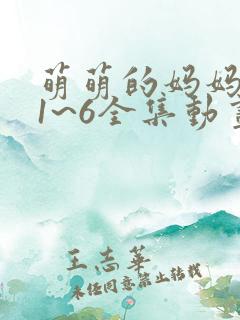 萌萌的妈妈
1~6全集動
王志華
未经同意禁止转载